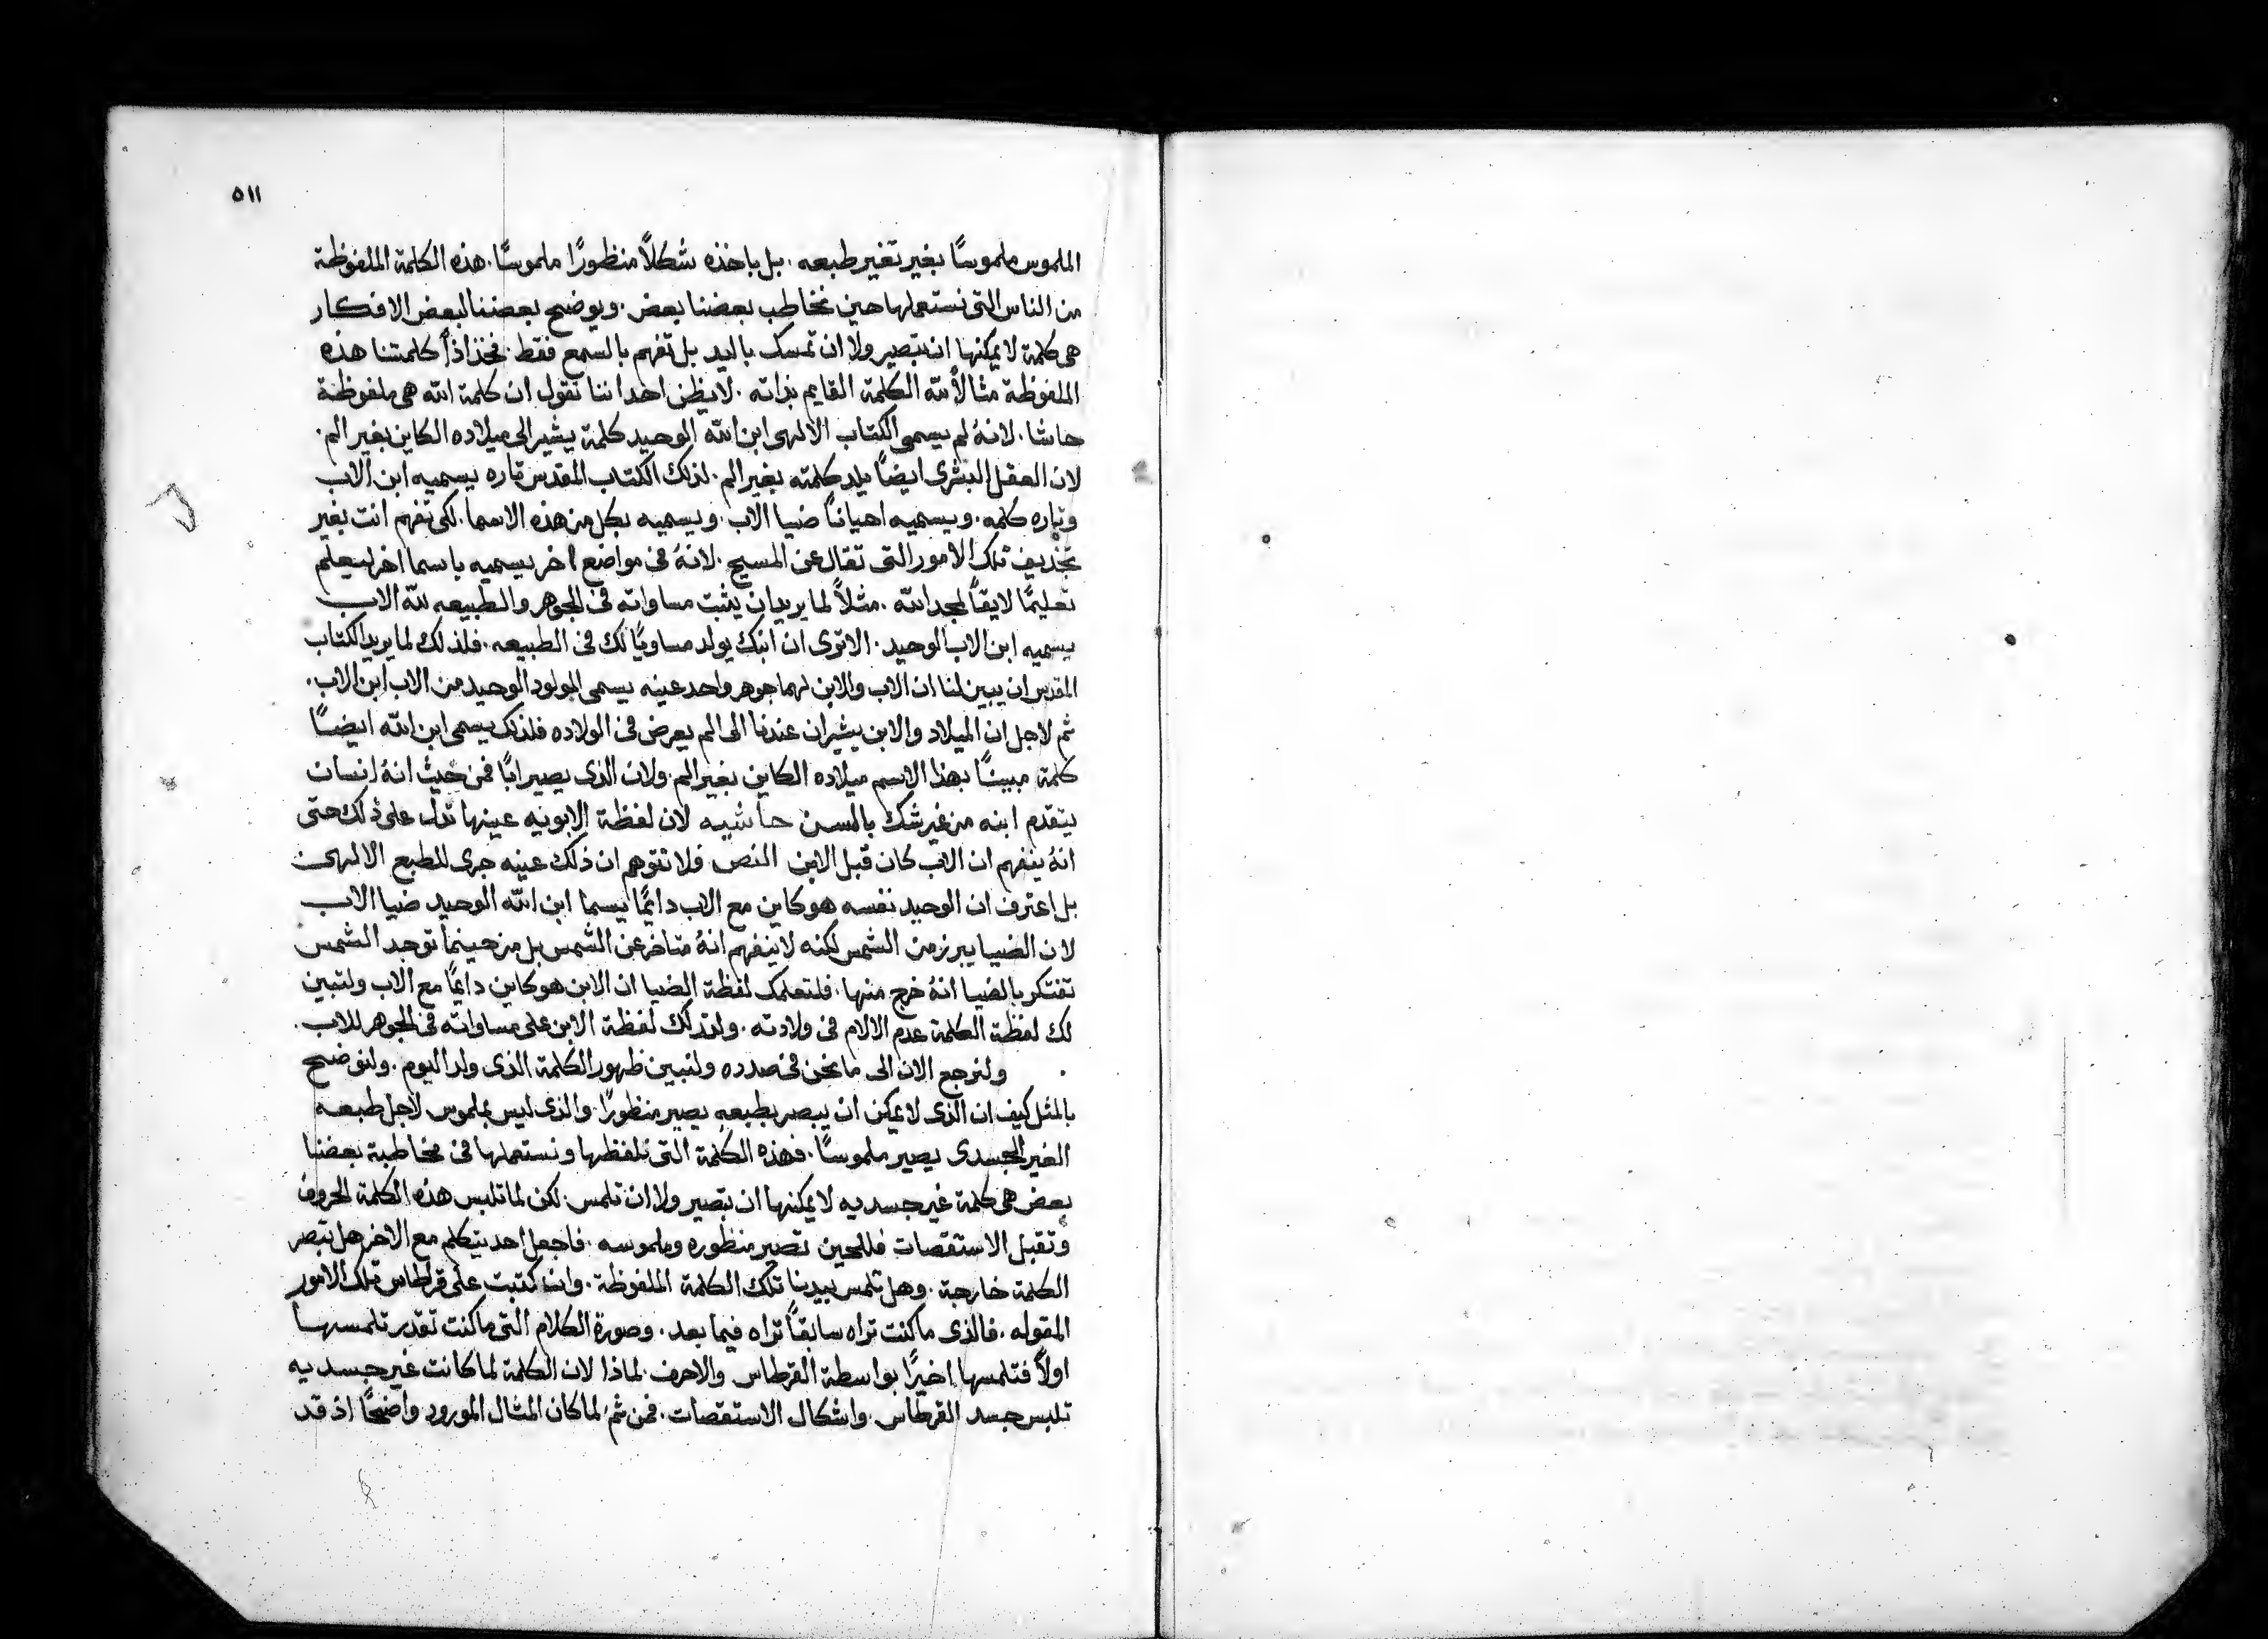 ٥١١
الملموس ملموسًا بغير تغير طبعه . بل باخذه شكلاً منظورًا ملموسًا . هذه الكلمة الملفوظة
من الناس التى نستعملها حين نخاطب بعضنا بعض . ويوضح بعضنا لبعض الافكار
هى كلمة لا يمكنها ان تبصر ولا ان تمسك باليد بل تفهم بالسمع فقط . فخذ اذاً كلمتنا هذه
الملفوظة مثالاً لله الكلمة القايم بذاته . لا يظن احد اننا نقول ان كلمة الله هى ملفوظة
حاشا . لانهُ لم يسمى الكتاب الالهى ابن الله الوحيد كلمة يشير الى ميلاده الكاين بغير الم .
لان العقل البشرى ايضاً يلد كلمته بغير الم . لذلك الكتاب المقدس تاره يسميه ابن الاب
وتاره كلمه . ويسميه احياناً ضيا الاب . ويسميه بكل من هذه الاسما . لكى تفهم انت بغير
تجديف تلك الامور التى تقال عن المسيح . لانهُ فى مواضع اخر يسميه باسما اخر ليعلم
تعليمًا لايقاً لمجد الله . مثلاً لما يريد ان يثبت مساواته فى الجوهر والطبيعه لله الاب
يسميه ابن الاب الوحيد . الا ترى ان ابنك يولد مساويًا لك فى الطبيعه . فلذلك لما يريد الكتاب
المقدس ان يبين لنا ان الاب والابن لهما جوهر واحد عينه يسمى المولود الوحيد من الاب ابن الاب .
ثم لاجل ان الميلاد والابن يشيران عندنا الى الم يعرض فى الولاده فلذلك يسمى ابن الله ايضًا
كلمة مبينًا بهذا الاسم ميلاده الكاين بغير الم . ولان الذى يصير ابًا فمن حيث انهُ انسان
يتقدم ابنه من غير شك بالسن حاشيه لان لفظة الابونيه عينها تدل على ذلك حتى
انهُ ينفهم ان الاب كان قبل الابن النص فلا تتوهم ان ذلك عينه جرى للطبع الالهى
بل اعترف ان الوحيد نفسه هو كاين مع الاب دايمًا يسما ابن الله الوحيد ضيا الاب
لان الضيا يبرز من الشمس لكنه لا ينفهم انهُ متاخر عن الشمس بل من حينما توجد الشمس
تفتكر بالضيا انهُ خرج منها . فلتعلمك لفظة الضيا ان الابن هو كاين دايمًا مع الاب ولتبين
لك لفظة الكلمة عدم الالام فى ولادته . ولتدلك لفظة الابن على مساواته فى الجوهر للاب .
ولنرجع الان الى ما نحن فى صدده ولنبين ظهور الكلمة الذى ولد اليوم . ولنوضح
بالمثل كيف ان الذى لا يمكن ان يبصر بطبعه يصير منظورًا . والذى ليس بملموس لاجل طبعه
الغير الجسدى يصير ملموسًا . فهذه الكلمة التى نلفظها ونستعملها فى مخاطبة بعضنا
بعض هى كلمة غير جسديه لا يمكنها ان تبصر ولا ان تلمس . لكن لما تلبس هذه الكلمة الحروف
وتقبل الاستقصات فللحين تصير منظوره وملموسه . فاجعل احد يتكلم مع الاخر هل تبصر
الكلمة خارجة . وهل تلمس بيدنا تلك الكلمة الملفوظة . وان كتبت على قرطاس تلك الامور
المقوله . فالذى ما كنت تراه سابقاً تراه فيما بعد . وصورة الكلام التى ما كنت تقدر تلمسها
اولاً فتلمسها اخيرًا بواسطة القرطاس والاحرف . لماذا لان الكلمة لما كانت غير جسديه
تلبس جسد القرطاس . واشكال الاستقصات . فمن ثم لما كان المثال المورود واضحًا اذ قد